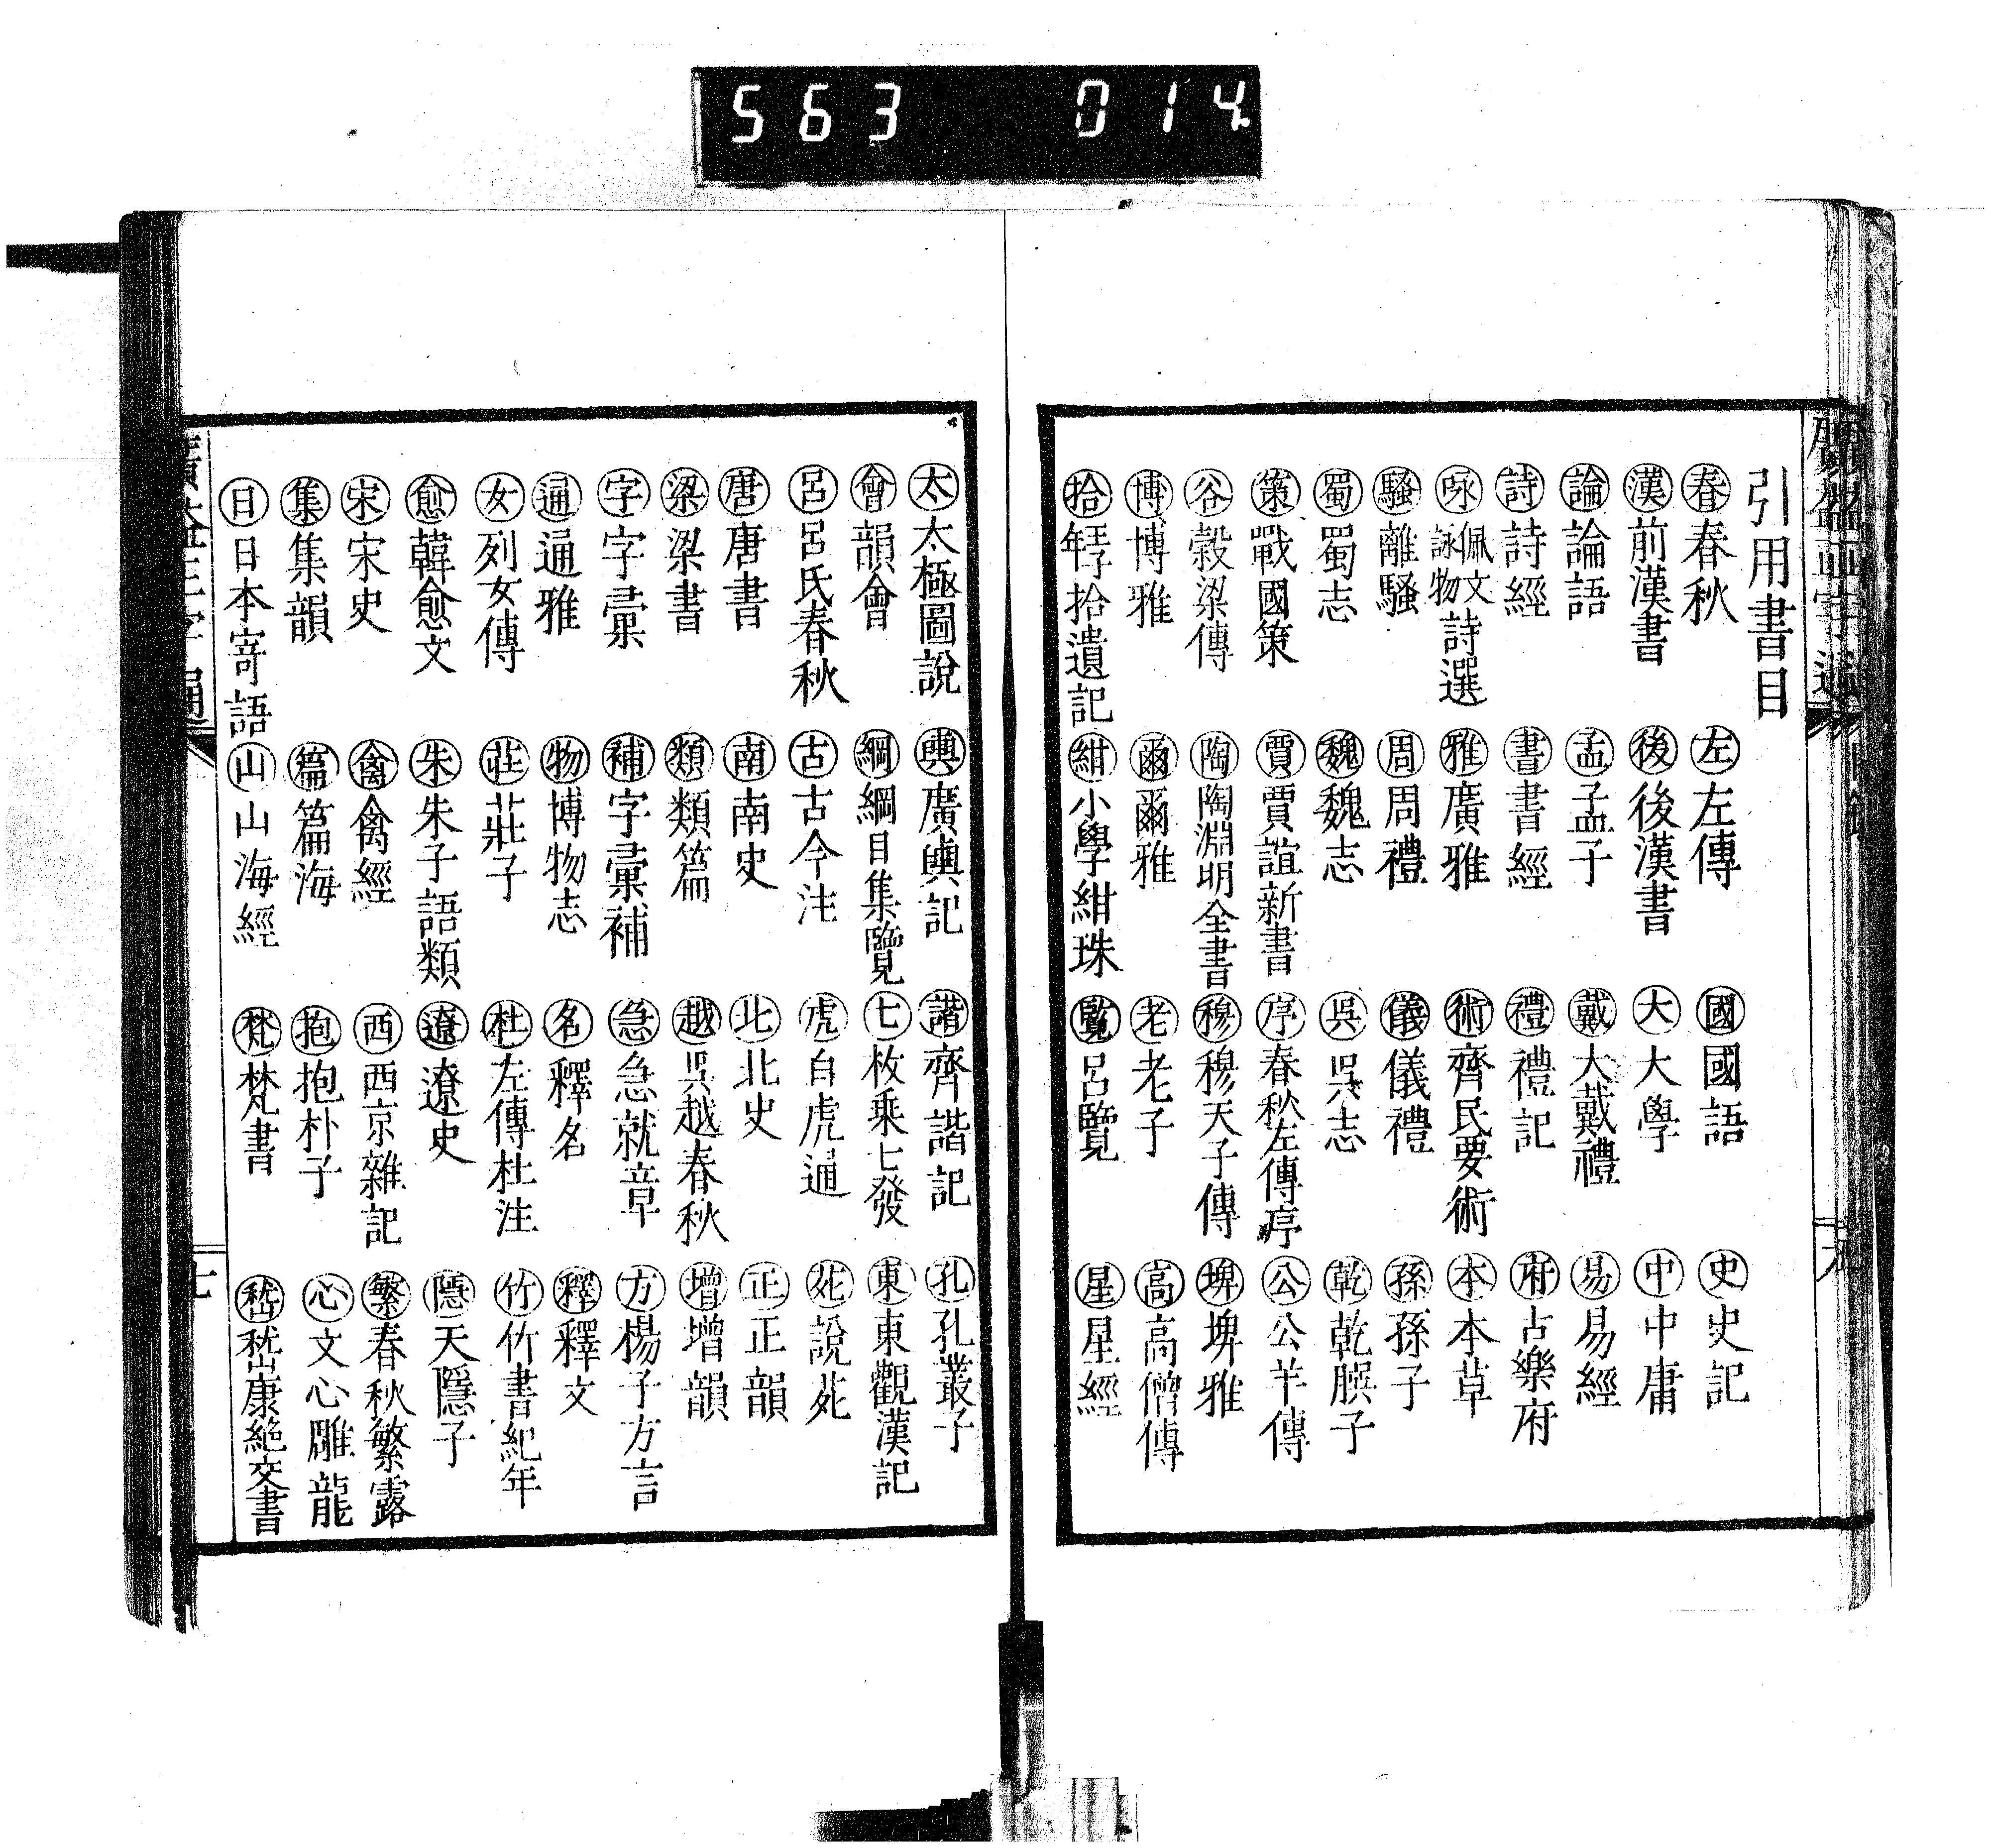 563 014
引用書目
春 春秋 左 左傳 國 國語 史 史記
漢 前漢書 後 後漢書 大 大學 中 中庸
論 論語 孟 孟子 戴 大戴禮 易 易經
詩 詩經 書 書經 禮 禮記 府 古樂府
咏 佩文詠物詩選 雅 廣雅 術 齊民要術 本 本草
騷 離騷 周 周禮 儀 儀禮 孫 孫子
蜀 蜀志 魏 魏志 吳 吳志 乾 乾䐠子
策 戰國策 賈 賈誼新書 序 春秋左傳序 公 公羊傳
谷 穀梁傳 陶 陶淵明全書 穆 穆天子傳 埤 埤雅
博 博雅 爾 爾雅 老 老子 高 高僧傳
拾 王子年拾遺記 紺 小學紺珠 覽 呂覽 星 星經
太 太極圖說 輿 廣輿記 諧 齊諧記 孔 孔叢子
會 韻會 綱 綱目集覽 七 枚乘七發 東 東觀漢記
呂 呂氏春秋 古 古今注 虎 白虎通 苑 說苑
唐 唐書 南 南史 北 北史 正 正韻
梁 梁書 類 類篇 越 吳越春秋 增 增韻
字 字彙 補 字彙補 急 急就章 方 楊子方言
通 通雅 物 博物志 名 釋名 釋 釋文
女 列女傳 莊 莊子 杜 左傳杜注 竹 竹書紀年
愈 韓愈文 朱 朱子語類 遼 遼史 隱 天隱子
宋 宋史 禽 禽經 西 西京雜記 繁 春秋繁露
集 集韻 篇 篇海 抱 抱朴子 心 文心雕龍
日 日本寄語 山 山海經 梵 梵書 嵇 嵇康絕交書
七